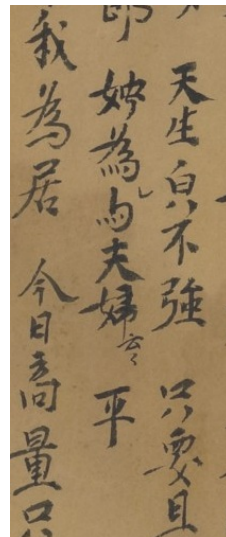 天生自不強 只要且
郎 娉為勾夫婦 平
我為居 今日商量只